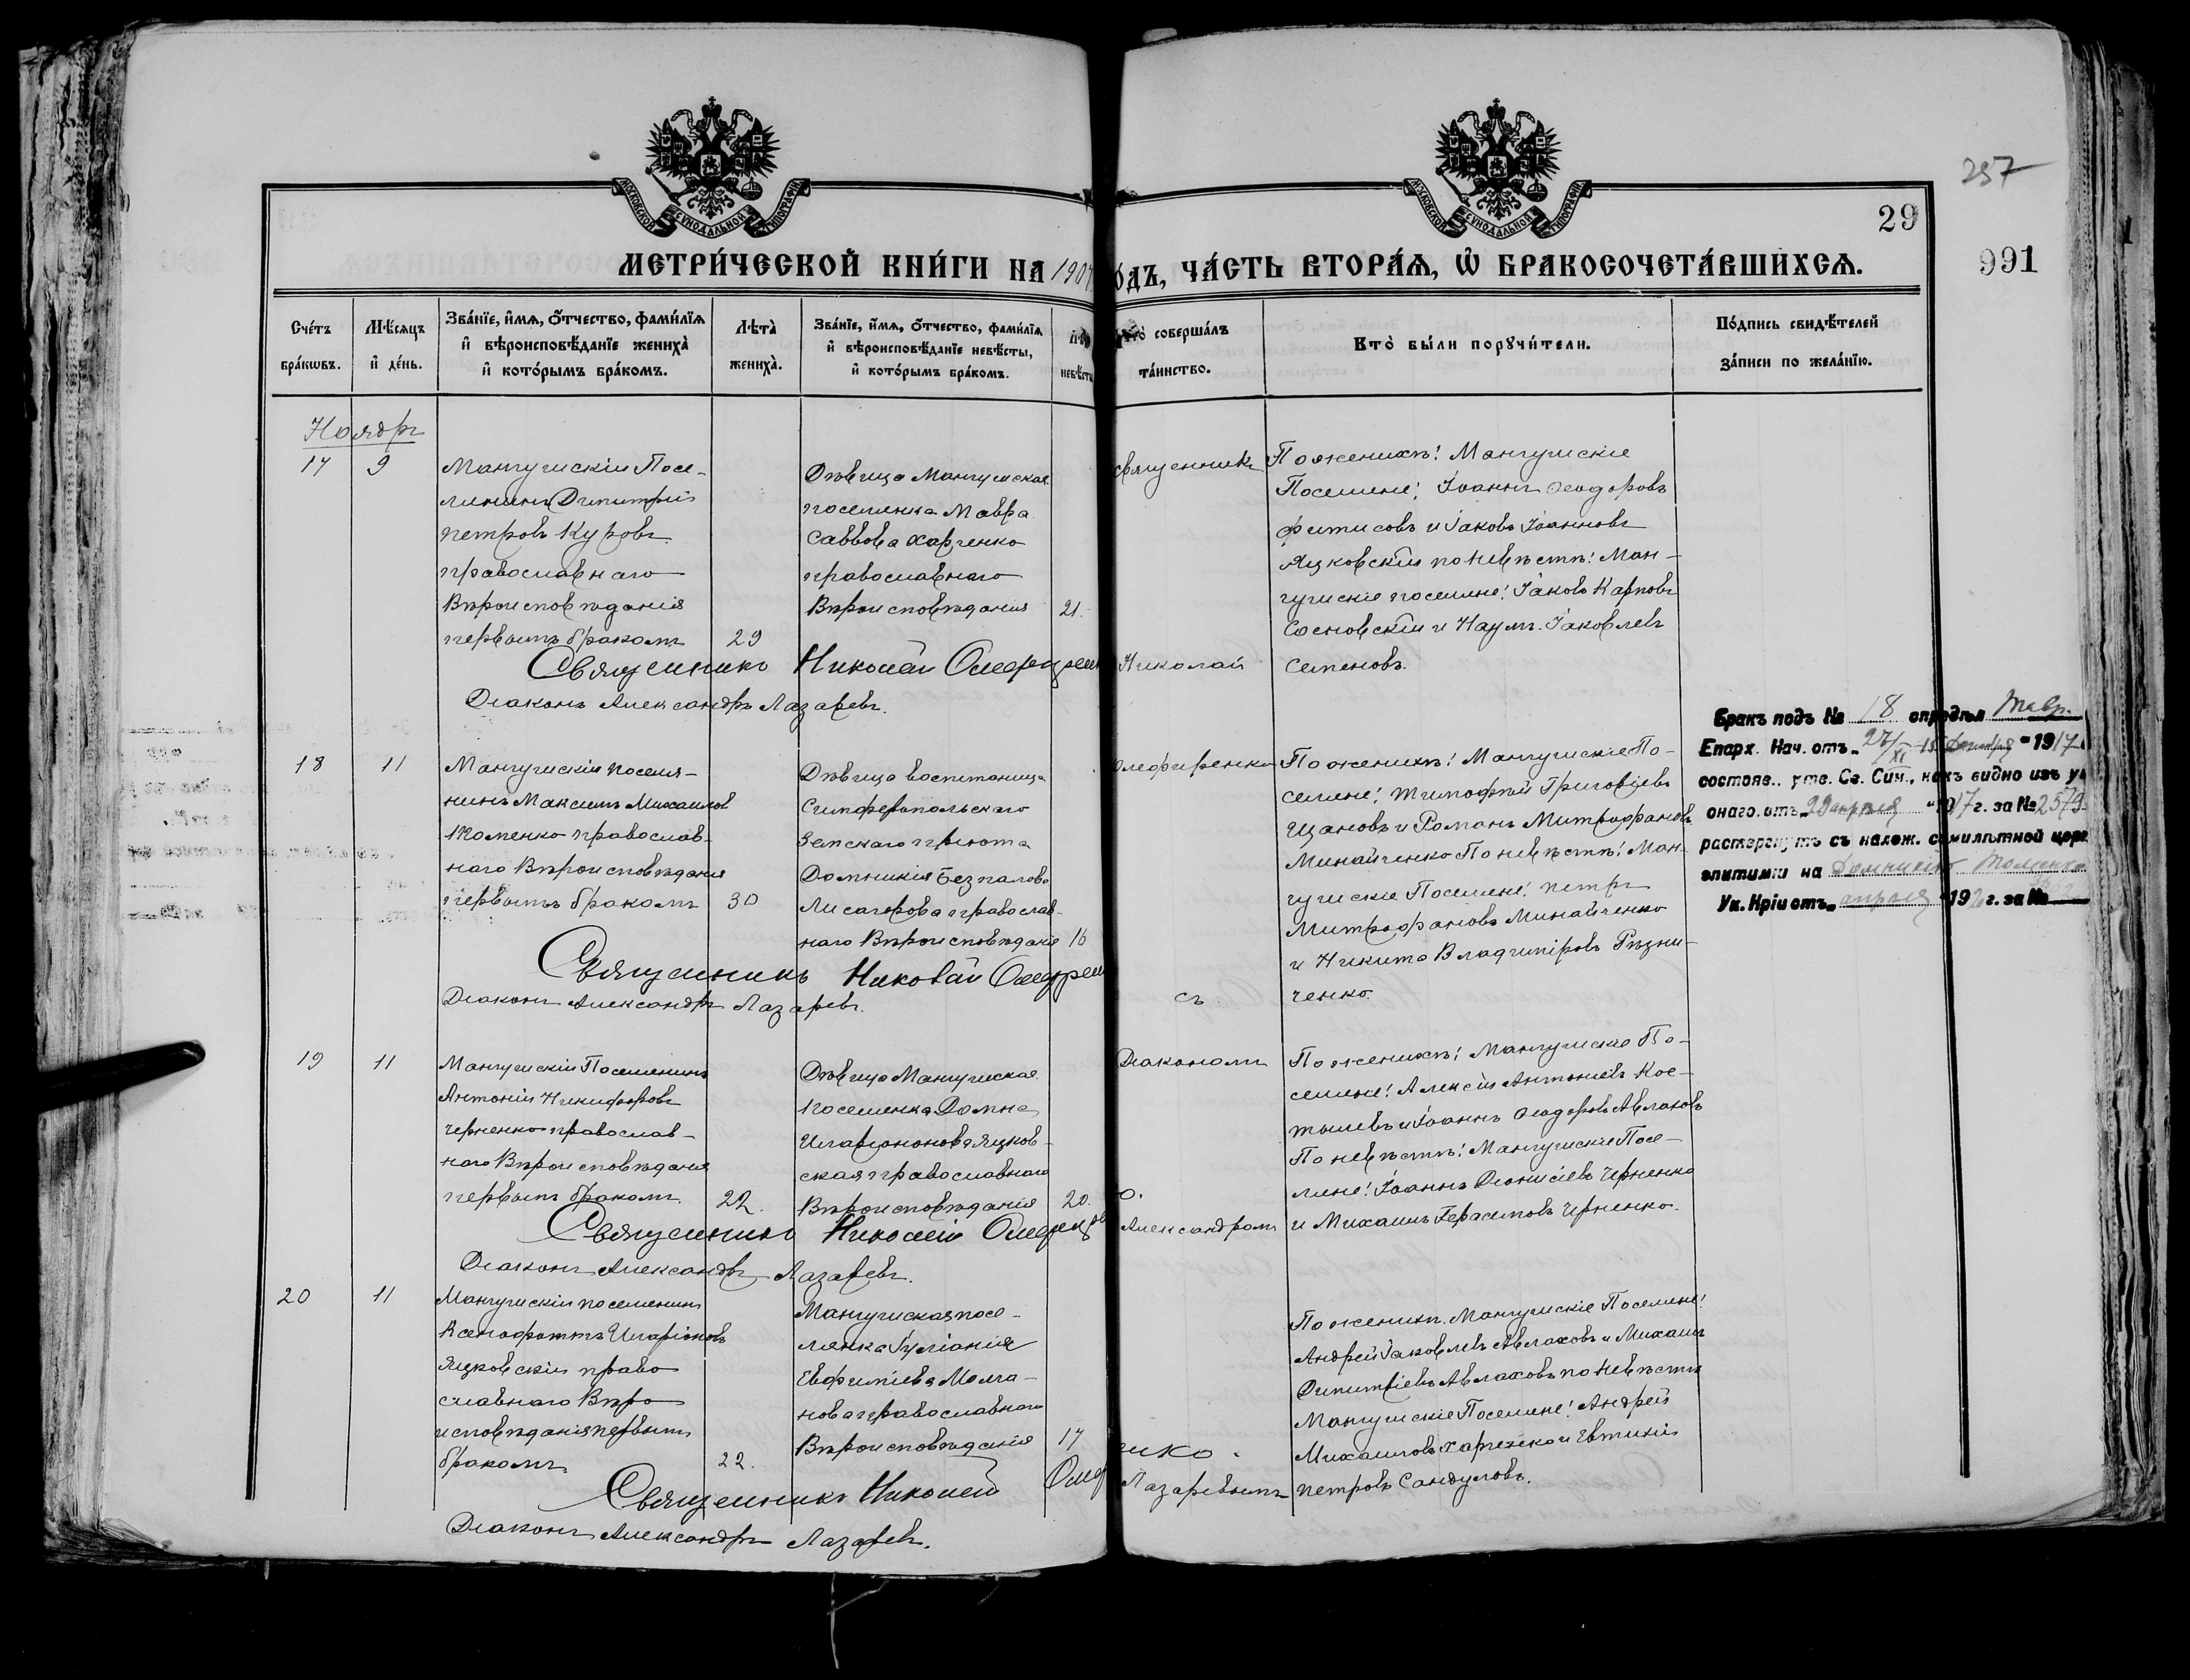 257
МОСКОВСКОЙ СѴНОДАЛЬНОЙ ТИПОГРАФІИ
МОСКОВСКОЙ СѴНОДАЛЬНОЙ ТИПОГРАФІИ
29
991
МЕТРИ́ЧЕСКОЙ КНИ́ГИ НА 1904
О́ДЪ, ЧА́СТЬ ВТОРА́Я, Ѡ҆ БРАКОСОЧЕТА́ВШИХСЯ.
Сче́тъ бра́кѡвъ.
Мѣ́сяцъ и҆ де́нь.
Зва́нїе, и҆́мя, ѻ҆́тчество, фами́лїя и҆ вѣроисповѣ́данїе жениха̀ и҆ кото́рымъ бра́комъ.
Лѣта̀ жениха̀.
Зва́нїе, и҆́мя, ѻ҆́тчество, фами́лїя и҆ вѣроисповѣ́данїе невѣ́сты, и҆ кото́рымъ бра́комъ.
невѣсты
совершáлъ
тáинство.
Кто̀ бы́ли порꙋчи́тели.
По́дпись свидѣ́телей за́писи по жела́нїю.
Ноябрь
17 9
Мангушскій Посе-
лянинъ Димитрій
Петровъ Куровъ
православнаго
Вѣроисповѣданія
первымъ бракомъ 29
Дѣвица Мангушская
поселянка Мавра
Саввова Харченко
православнаго
Вѣроисповѣданія 21.
Священникъ
По женихѣ: Мангушскіе
Поселяне: Іоаннъ Ѳеодоровъ
Фитисовъ и Іаковъ Іоанновъ
Яцковскій по невѣстѣ: Ман-
гушскіе поселяне: Іаковъ Карповъ
Сосновскій и Наумъ Іаковлевъ
Семеновъ.
Священникъ Николай
Николай
Діаконъ Александръ Лазаревъ.
18 11
Мангушскій поселя-
нинъ Максимъ Михаиловъ
православ-
наго Вѣроисповѣданія
первымъ бракомъ 30
Дѣвица воспитанница
Симферопольскаго
Земскаго пріюта
Домникія Безпалова
православ-
наго Вѣроисповѣданія 16
Олефиренко
По женихѣ: Мангушскіе По-
селяне: Тимофей
и Романъ Митрофановъ
Минайченко По невѣстѣ: Ман-
гушскіе Поселяне: Петръ
Митрофановъ Минайченко
и Никита Владиміровъ Рѣзни-
ченко.
Священникъ Николай
Діаконъ Александръ Лазаревъ.
съ
Бракъ подъ № 18 опредѣл Тавр.
Епарх. Нач. отъ 27/XI-15 Декабря 1917
состояв.. утв. Св. Син., какъ видно изъ ук
онаго отъ апрѣля 1917 г. за № 2579
расторгнутъ съ налож. семилѣтной церк
эпитиміи на Домникію
Ук. Крію отъ апрѣля 192 г. за №
19 11
Мангушскій Поселянинъ
Антоній Никифоровъ
Черненко православ-
наго Вѣроисповѣданія
первымъ бракомъ 22.
Дѣвица Мангушская
поселянка Домна
Иларіонова Яцков-
ская православнаго
Вѣроисповѣданія 20.
Діакономъ
По женихѣ: Мангушскіе По-
селяне: Алексій Антоніевъ Кос-
тылевъ и Іоаннъ Ѳеодоровъ Авлаховъ
По невѣстѣ: Мангушскіе Посе-
ляне: Іоаннъ Діонисіевъ Черненко
и Михаилъ Герасимовъ Черненко.
Священникъ Николай
Александромъ
Діаконъ Александръ Лазаревъ.
20 11
Мангушскій поселянинъ
Ксенофонтъ Иларіоновъ
Яцковскій право
славнаго Вѣро
исповѣданія первымъ
бракомъ. 22.
Мангушская посе-
лянка Іуліанія
Евфиміева Молча-
нова православнаго
Вѣроисповѣданія 17
По женихѣ. Мангушскіе Поселяне:
Андрей Іаковлевъ Авлаховъ и Михаилъ
Димитріевъ Авлаховъ по невѣстѣ
Мангушскіе Поселяне: Андрей
Михаиловъ Харченко и Евтихій
Петровъ Сандуловъ.
Священникъ Николай
Лазаревымъ
Діаконъ Александръ Лазаревъ.